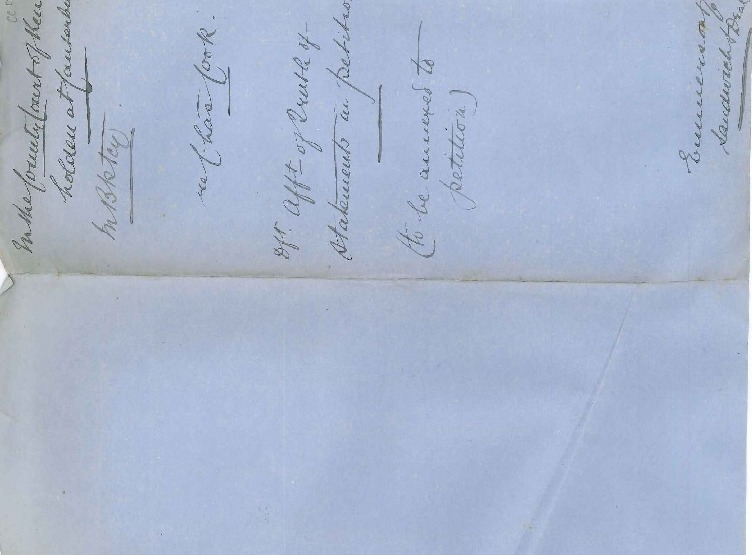 In the County Court of Ken
holden at Canterbu
In Bktcy
re Chas Cook.
Dft. Afft of truth of
statements in petitio
(to be annexed to
petition)
Emmerson
Sandwich & Deal